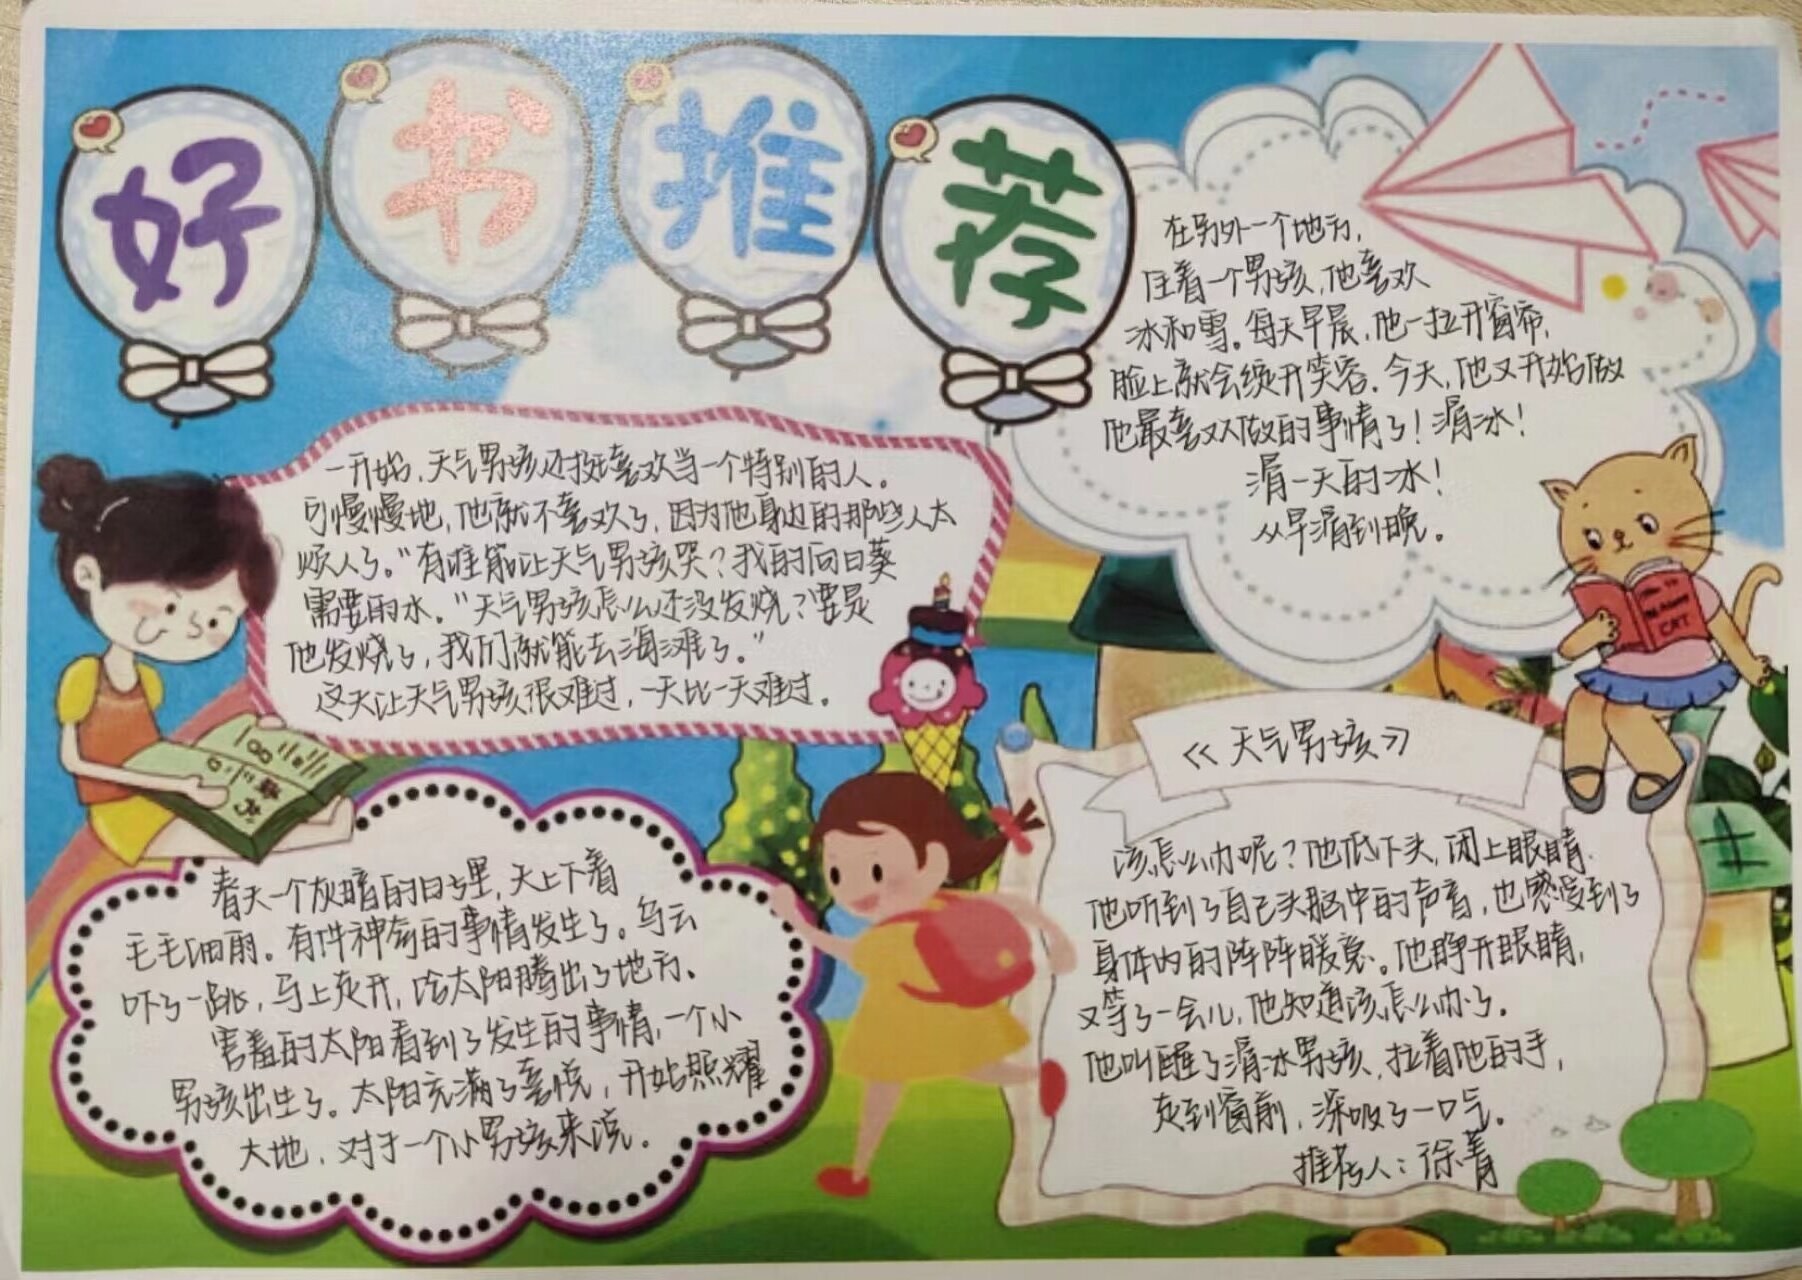 好书推荐
在另外一个地方,
住着一个男孩,他喜欢
冰和雪。每天早晨,他一拉开窗帘,
脸上就会绽开笑容.今天,他又开始做
他最喜欢做的事情了!滑冰!
滑一天的冰!
从早滑到晚。
一开始,天气男孩还挺喜欢当一个特别的人。
可慢慢地,他就不喜欢了,因为他身边的那些人太
烦人了。"有谁能让天气男孩哭?我的向日葵
需要的水。"天气男孩怎么还没发烧?要是
他发烧了,我们就能去海滩了。"
这天让天气男孩很难过,一天比一天难过.
春天一个灰暗的日子里,天上下着
毛毛细雨。有件神奇的事情发生了。乌云
吓了一跳,马上走开,给太阳腾出了地方.
害羞的太阳看到了发生的事情,一个小
男孩出生了。太阳充满了喜悦,开始照耀
大地,对于一个小男孩来说.
《天气男孩》
该怎么办呢?他低下头,闭上眼睛.
他听到了自己头脑中的声音,也感受到了
身体内的阵阵暖意。他睁开眼睛,
又等了一会儿,他知道该怎么办了.
他叫醒了滑冰男孩,拉着他的手,
走到窗前,深吸了一口气。
推荐人:徐菁
CAT